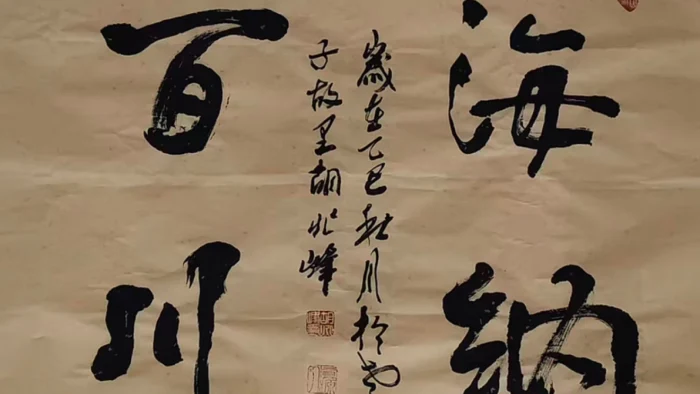 海纳
百川
岁在乙巳秋月于
子故里胡兆峰